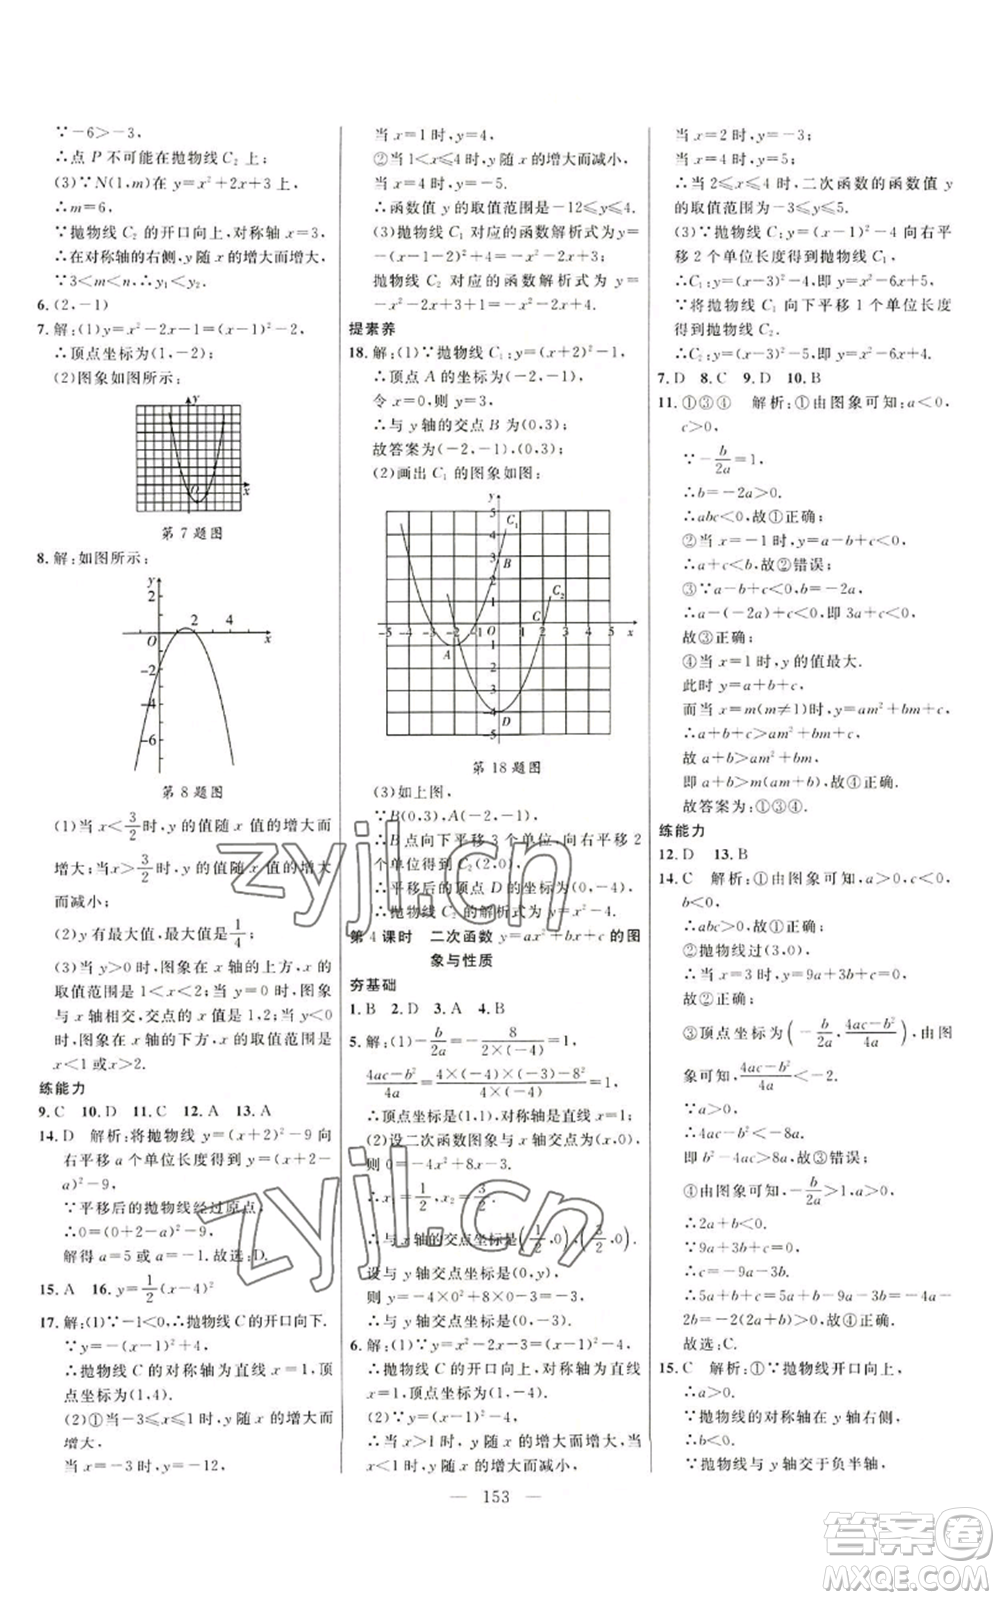 ∵－6＞－3，
∴点 P 不可能在抛物线 C₂ 上；
(3)∵N(1,m)在 y＝x²＋2x＋3 上，
∴m＝6，
∵抛物线 C₂ 的开口向上，对称轴 x＝3，
∴在对称轴的右侧，y 随 x 的增大而增大，
∵3＜m＜n，∴y₁＜y₂.
6. (2，－1)
7. 解：(1)y＝x²－2x－1＝(x－1)²－2，
∴顶点坐标为(1，－2)；
(2)图象如图所示：
y
O
x
第 7 题图
8. 解：如图所示：
y
2
2
4
O
x
－2
－4
－6
第 8 题图
(1)当 x＜3/2时，y 的值随 x 值的增大而
增大；当 x＞3/2时，y 的值随 x 值的增大
而减小；
(2)y 有最大值，最大值为1/4；
(3)当 y＞0 时，图象在 x 轴的上方，x 的
取值范围是 1＜x＜2；当 y＝0 时，图象
与 x 轴相交，交点的 x 值是 1，2；当 y＜0
时，图象在 x 轴的下方，x 的取值范围是
x＜1 或 x＞2.
练能力
9. C 10. D 11. C 12. A 13. A
14. D 解析：将抛物线 y＝(x＋2)²－9 向
右平移 a 个单位长度得到 y＝(x＋2－
a)²－9，
∵平移后的抛物线经过原点，
∴0＝(0＋2－a)²－9，
解得 a＝5 或 a＝－1. 故选：D.
15. A 16. y＝1/2(x－4)²
17. 解：(1)∵－1＜0，∴抛物线 C 的开口向下.
∵y＝－(x－1)²＋4，
∴抛物线 C 的对称轴为直线 x＝1，顶
点坐标为(1，4)；
(2)①当－3≤x≤1 时，y 随 x 的增大而
增大，
当 x＝－3 时，y＝－12，
当 x＝1 时，y＝4，
②当 1＜x≤4 时，y 随 x 的增大而减小，
当 x＝4 时，y＝－5.
∴函数值 y 的取值范围是－12≤y≤4.
(3)抛物线 C₁ 对应的函数解析式为 y＝
－(x－1)²＋4＝－x²＋2x＋3，
抛物线 C₂ 对应的函数解析式为 y＝
－x²－2x＋3＋1＝－x²－2x＋4.
提素养
18. 解：(1)∵抛物线 C₁：y＝(x＋2)²－1，
∴顶点 A 的坐标为(－2，－1)，
令 x＝0，则 y＝3，
∴与 y 轴的交点 B 为(0，3)；
故答案为(－2，－1)，(0，3)；
(2)画出 C₁ 的图象如图：
y
5
C₁
4
B
2
C
C₂
－5－4－3－2－1 O 1 2 3 4 5 x
A
－4
D
－5
第 18 题图
(3)如上图，
∵B(0，3)，A(－2，－1)，
∴B 点向下平移 3 个单位，向右平移 2
个单位得到 C₂(2，0)，
∴平移后的顶点 D 的坐标为(0，－4)，
∴抛物线 C₂ 的解析式为 y＝x²－4.
第 4 课时 二次函数 y＝ax²＋bx＋c 的图
象与性质
夯基础
1. B 2. D 3. A 4. B
5. 解：(1)－b/2a＝－8/(2×(－4))＝1，
(4ac－b²)/4a＝(4×(－4)×(－3)－8²)/(4×(－4))＝1，
∴顶点坐标是(1，1)，对称轴是直线 x＝1；
(2)设二次函数图象与 x 轴交点为(x，0)，
则 0＝－4x²＋8x－3，
∴x₁＝1/2，x₂＝3/2.
∴与 x 轴的交点坐标是(1/2，0)，(3/2，0).
设与 y 轴交点坐标是(0，y)，
则 y＝－4×0²＋8×0－3＝－3，
∴与 y 轴交点坐标是(0，－3).
6. 解：(1)∵y＝x²－2x－3＝(x－1)²－4，
∴抛物线的开口向上，对称轴为直线
x＝1，顶点坐标为(1，－4).
(2)∵y＝(x－1)²－4，
∴当 x＞1 时，y 随 x 的增大而增大，当
x＜1 时，y 随 x 的增大而减小，
当 x＝2 时，y＝－3；
当 x＝4 时，y＝5；
∴当 2≤x≤4 时，二次函数的函数值 y
的取值范围为－3≤y≤5.
(3)∵抛物线 C：y＝(x－1)²－4 向右平
移 2 个单位长度得到抛物线 C₁，
∴C₁：y＝(x－3)²－4，即 y＝x²－6x＋5，
∵将抛物线 C₁ 向下平移 1 个单位长度
得到抛物线 C₂.
∴C₂：y＝(x－3)²－5，即 y＝x²－6x＋4.
7. D 8. C 9. D 10. B
11. ①③④ 解析：①由图象可知：a＜0，
c＞0，
∵－b/2a＝1，
∴b＝－2a＞0.
∴abc＜0，故①正确；
②当 x＝－1 时，y＝a－b＋c＜0，
∴a＋c＜b，故②错误；
③∵a－b＋c＜0，b＝－2a，
∴a－(－2a)＋c＜0，即 3a＋c＜0，
故③正确；
④当 x＝1 时，y 的值最大.
此时 y＝a＋b＋c，
而当 x＝m(m≠1)时，y＝am²＋bm＋c，
∴a＋b＋c＞am²＋bm＋c，
故 a＋b＞am²＋bm，
即 a＋b＞m(am＋b)，故④正确.
故答案为：①③④.
练能力
12. D 13. B
14. C 解析：①由图象可知，a＞0，c＜0，
b＜0，
∴abc＞0，故①错误；
②抛物线过(3，0)，
∴当 x＝3 时，y＝9a＋3b＋c＝0，
故②正确；
③顶点坐标为(－b/2a，(4ac－b²)/4a)，由图
象可知，(4ac－b²)/4a＜－2.
∵a＞0，
∴4ac－b²＜－8a.
即 b²－4ac＞8a，故③错误；
④由图象可知，－b/2a＞1，a＞0，
∴2a＋b＜0.
∵9a＋3b＋c＝0，
∴c＝－9a－3b，
∴5a＋b＋c＝5a＋b－9a－3b＝－4a－
2b＝－2(2a＋b)＞0，故④正确.
故选：C.
15. C 解析：①∵抛物线开口向上，
∴a＞0.
∵抛物线的对称轴在 y 轴右侧，
∴b＜0.
∵抛物线与 y 轴交于负半轴，
— 153 —
zyjl.cn
zyjl.cn
答案圈
MXQE.COM